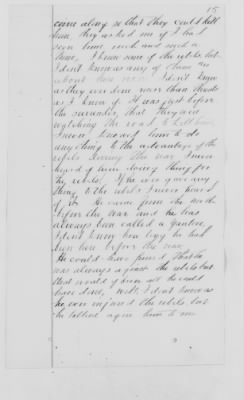 15
came along so that they could kill
him, they asked me if I had
seen him such and such a
time. I knew some of the rebels but
I don't know as any of them are
about here now. I don't know
as they ever done more than threats
as I know of. It was just before
the surrender, that they were
watching the road to kill him.
I never knew of him to do
any thing to the advantage of the
rebels during the war. I never
heard of him doing any thing for
the rebels. If he ever gave any
thing to the rebels I never heard
of it. He came from the north
before the war and he has
always been called a Yankee.
I don't know how long he had
been here before the war.
He could have proved that he
was always against the rebels but
that would of been all he could
have done, well, I don't know as
he ever injured the rebels, but
he talked again them to me